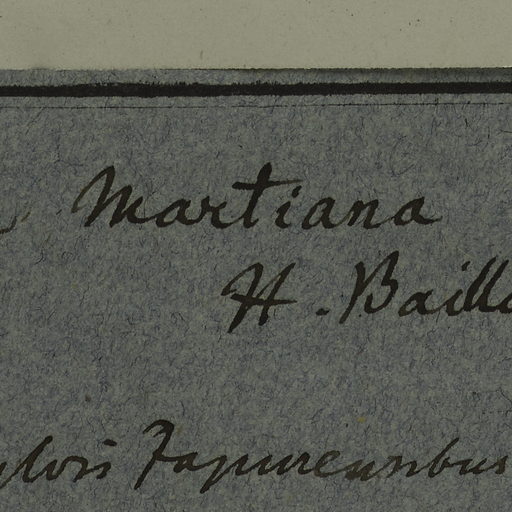 Martiana
H. Baill
ylvis Japurensibus